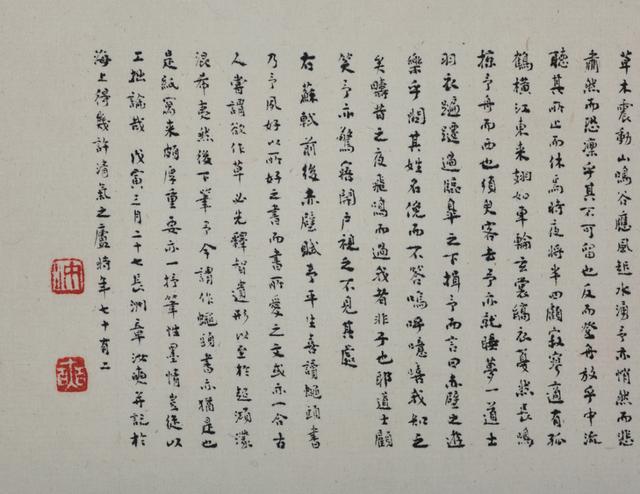 草木震動山鳴谷應風起水湧予亦悄然而悲
肅然而恐凜乎其不可留也反而登舟放乎中流
聽其所止而休焉時夜將半四顧寂寥適有孤
鶴橫江東來翅如車輪玄裳縞衣戛然長鳴
掠予舟而西也須臾客去予亦就睡夢一道士
羽衣蹁躚過臨皋之下揖予而言曰赤壁之遊
樂乎問其姓名俛而不答嗚呼噫嘻我知之
矣疇昔之夜飛鳴而過我者非子也耶道士顧
笑予亦驚寤開戶視之不見其處
右蘇軾前後赤壁賦予平生喜讀蠅頭書
乃予夙好以所好之書而書所愛之文或亦一合古
人書謂欲作草必先釋智遺形以至於超鴻濛
混希夷然後下筆予今謂作蠅頭書亦猶是也
是紙寫來頗厚重要亦一抒筆性墨情豈徒以
工拙論哉 戊寅三月二十七長洲章汝奭并記於
海上得幾許清氣之廬時年七十有二